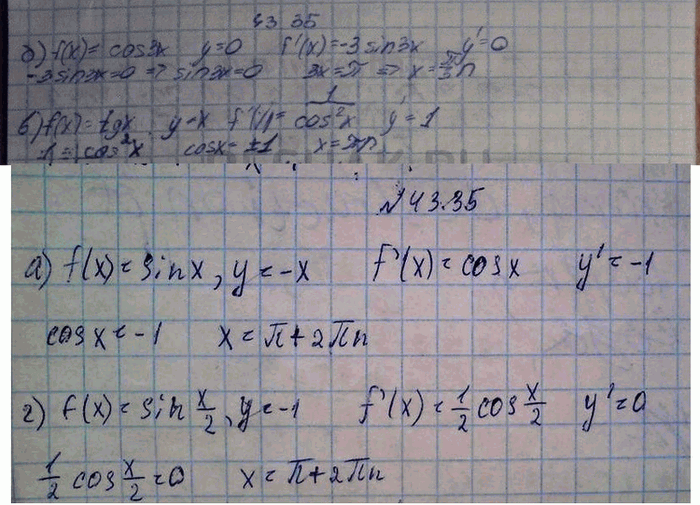 43.35
б) f(x) = cos3x y=0 f'(x)=-3sin3x y'=0
-3sin3x=0 => sin3x=0 3x=π => x=π/3 n
в) f(x)=tgx y=x f'(x)= 1/cos²x y'=1
1=cos²x cosx=±1 x=πn
№43.35
а) f(x)=sinx, y=-x f'(x)=cosx y'=-1
cosx=-1 x=π+2πn
г) f(x)=sin x/2, y=-1 f'(x)=1/2 cos x/2 y'=0
1/2 cos x/2=0 x=π+2πn